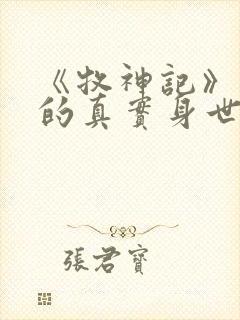 《牧神記》
的真實身世
張君寶